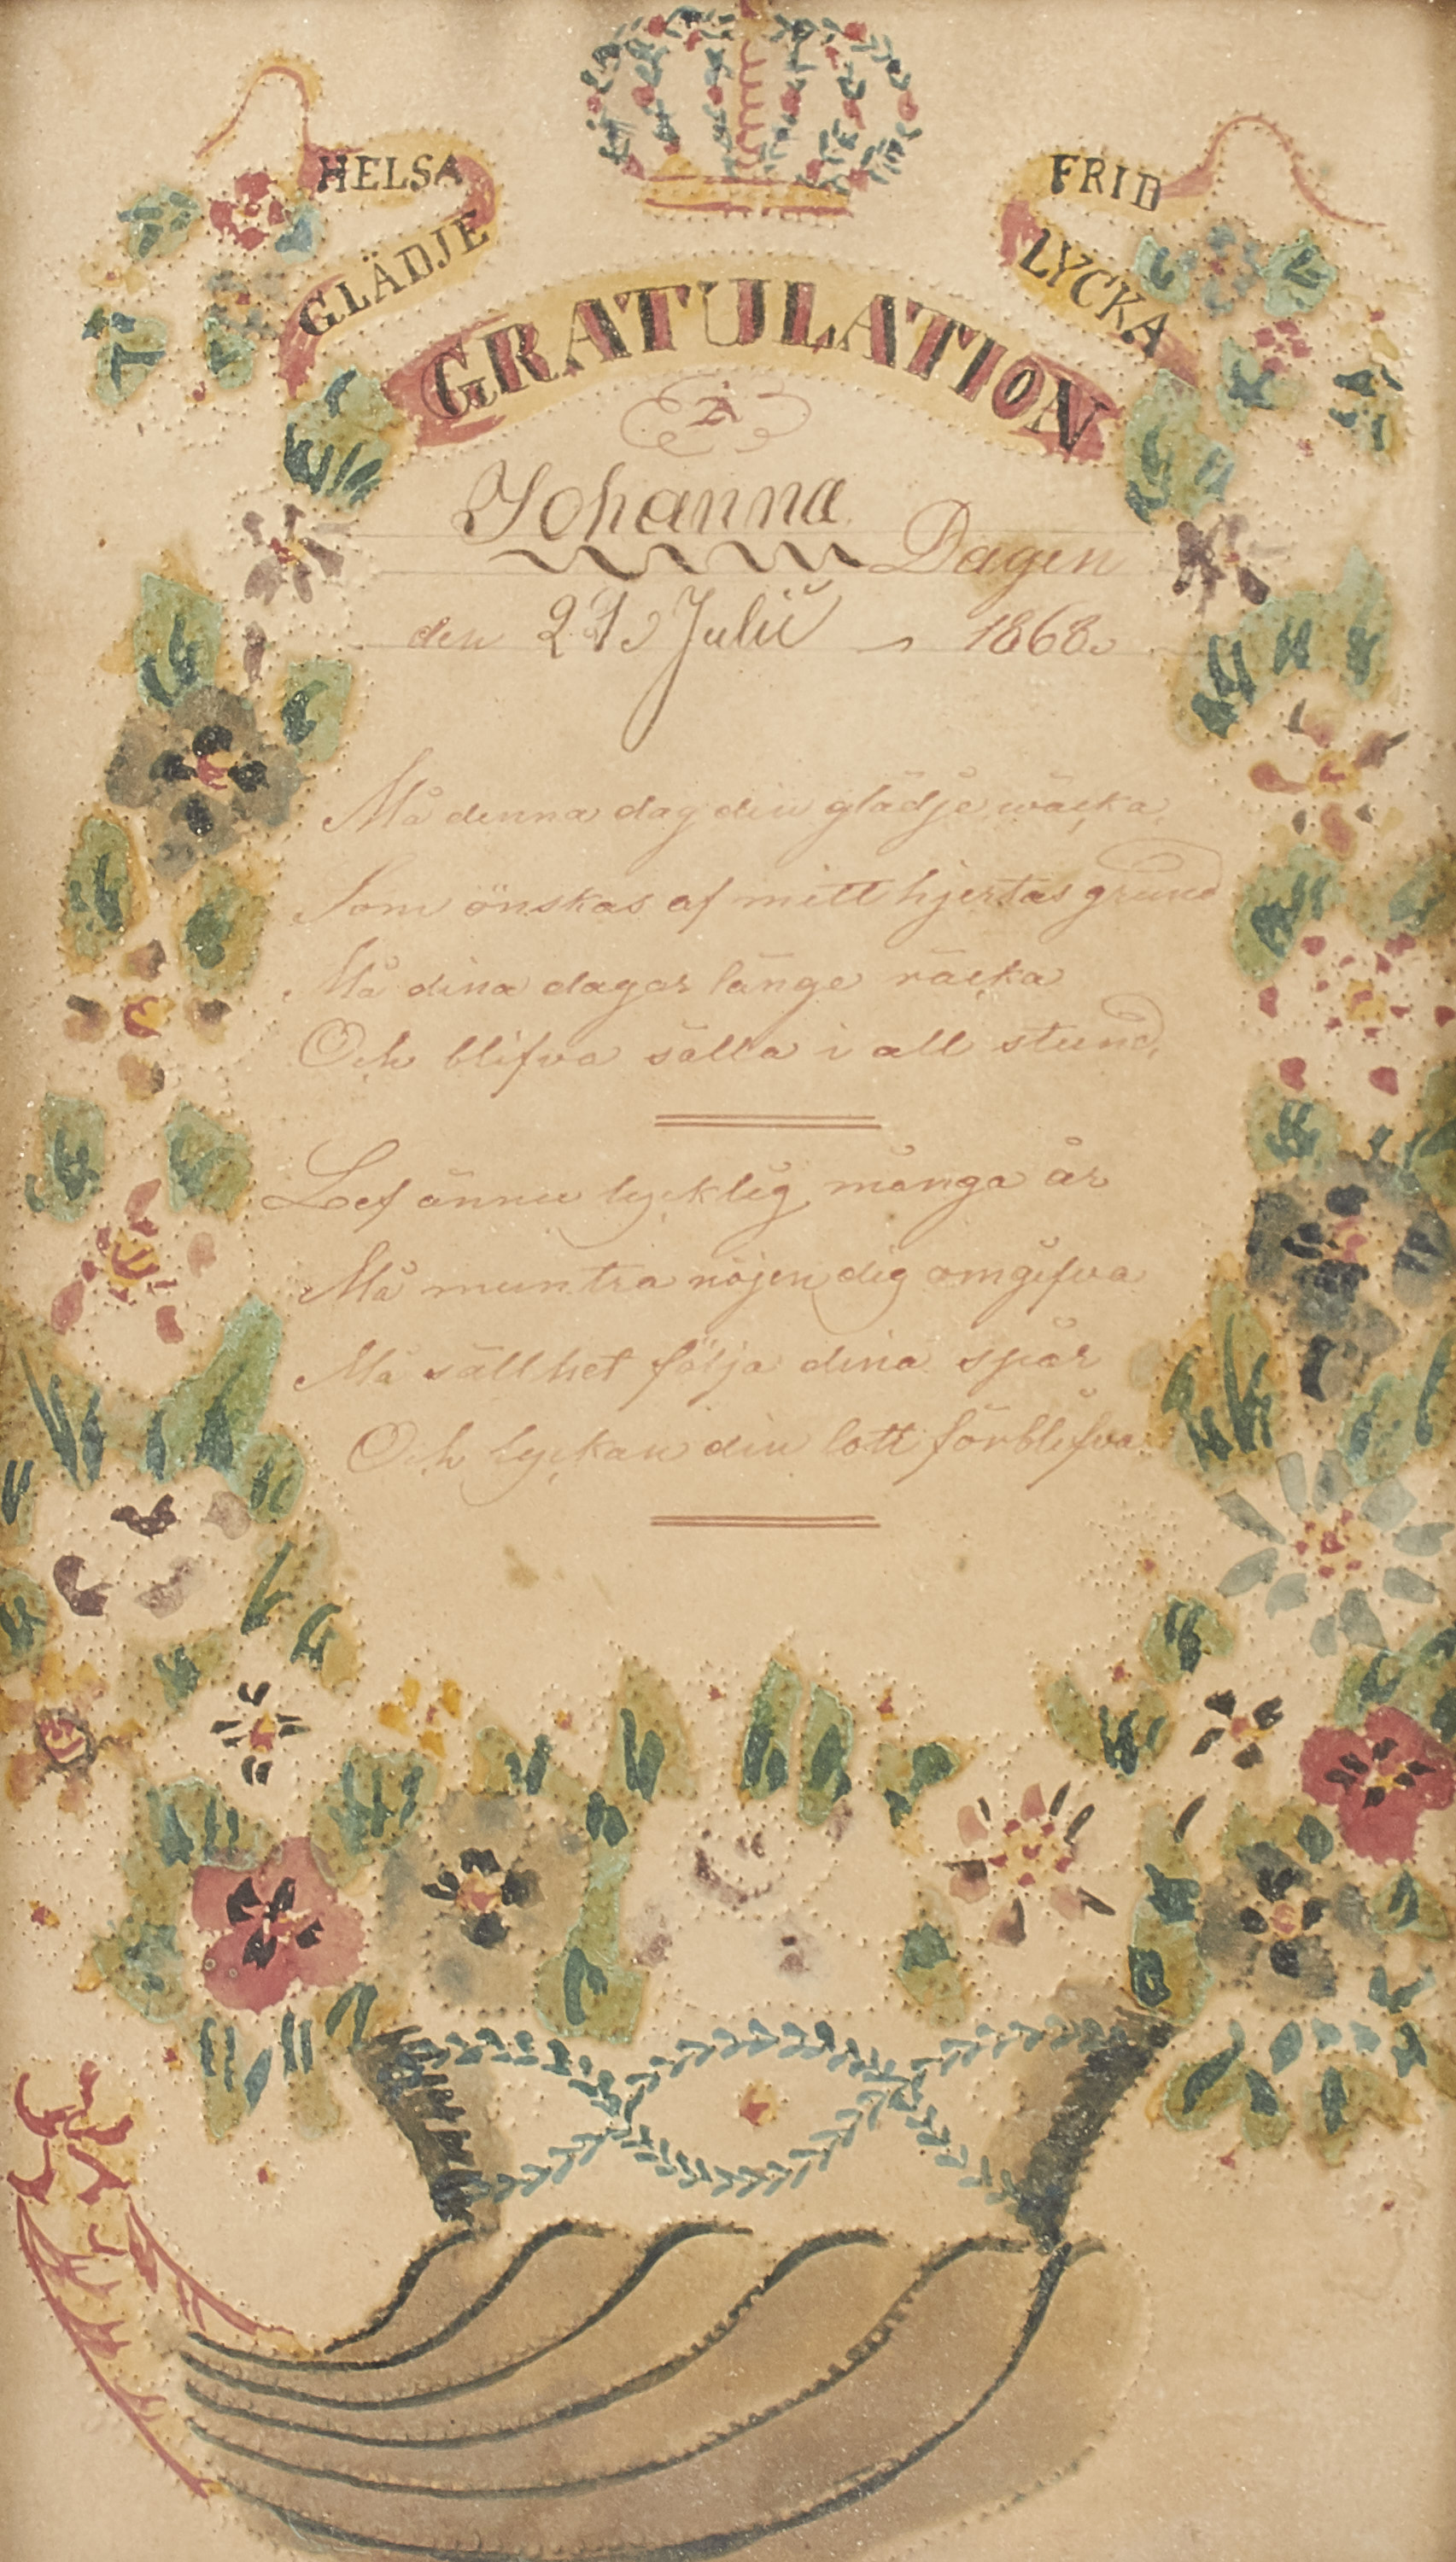 HELSA
GLÄDJE
FRID
LYCKA
GRATULATION
Å
Johanna
Dagen
den 21 Julii 1868.
Må denna dag din glädje väcka,
Som önskas af mitt hjertas grund
Må dina dagar länge räcka
Och blifva sälla i all stund,
Lef ännu lycklig många år
Må muntra nöjen dig omgifva
Må sällhet följa dina spår
Och lyckan din lott förblifva.